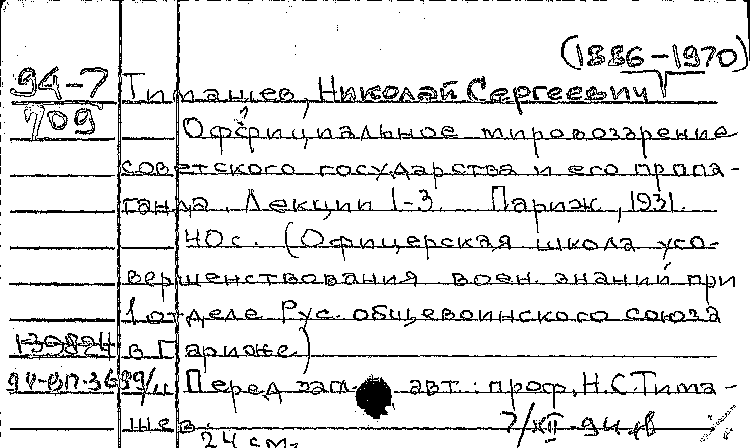 (1886-1970)
94-7 Тимашев, Николай Сергеевич
709 Оффициальное мировоззрение
советского государства и его пропа-
ганда. Лекции 1-3. Париж, 1931.
40с. (Офицерская школа усо-
вершенствования воен. знаний при
1 отделе Рус. общевоинского союза
139824 в Париже)
94-ВП-3689/11 Перед загл. авт.: проф. Н.С. Тима-
шев. 7/XII-94
24 см.